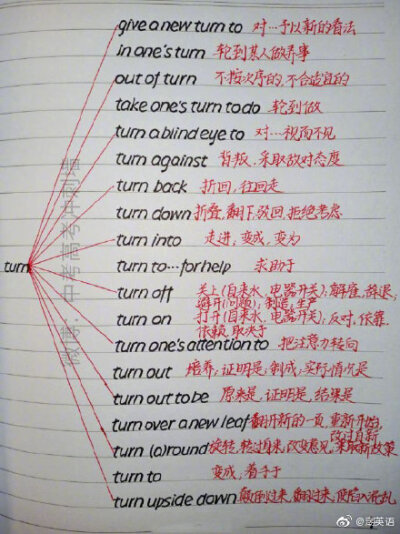 give a new turn to 对…予以新的看法
in one's turn 轮到某人做某事
out of turn 不按次序的,不合适宜的
take one's turn to do 轮到做
turn a blind eye to 对…视而不见
turn against 背叛,采取敌对态度
turn back 折回,往回走
turn down 折叠,翻下,驳回,拒绝考虑
turn into 走进,变成,变为
turn
turn to…for help 求助于
turn off 关上(自来水、电器开关);解雇,辞退,
避开(问题);制造,生产
turn on 打开(自来水、电器开关);反对,依靠
依赖,取决于
turn one's attention to 把注意力转向
turn out 培养;证明是;制成,实际情况是
turn out to be 原来是,证明是,结果是
turn over a new leaf 翻开新的一页,重新开始,
改过自新
turn (a)round 旋转,转过身来,改变意见,采取新政策
turn to 变成,着手于
turn upside down 颠倒过来,翻过来,使陷入混乱
微博:中考高考冲刺
@李英语